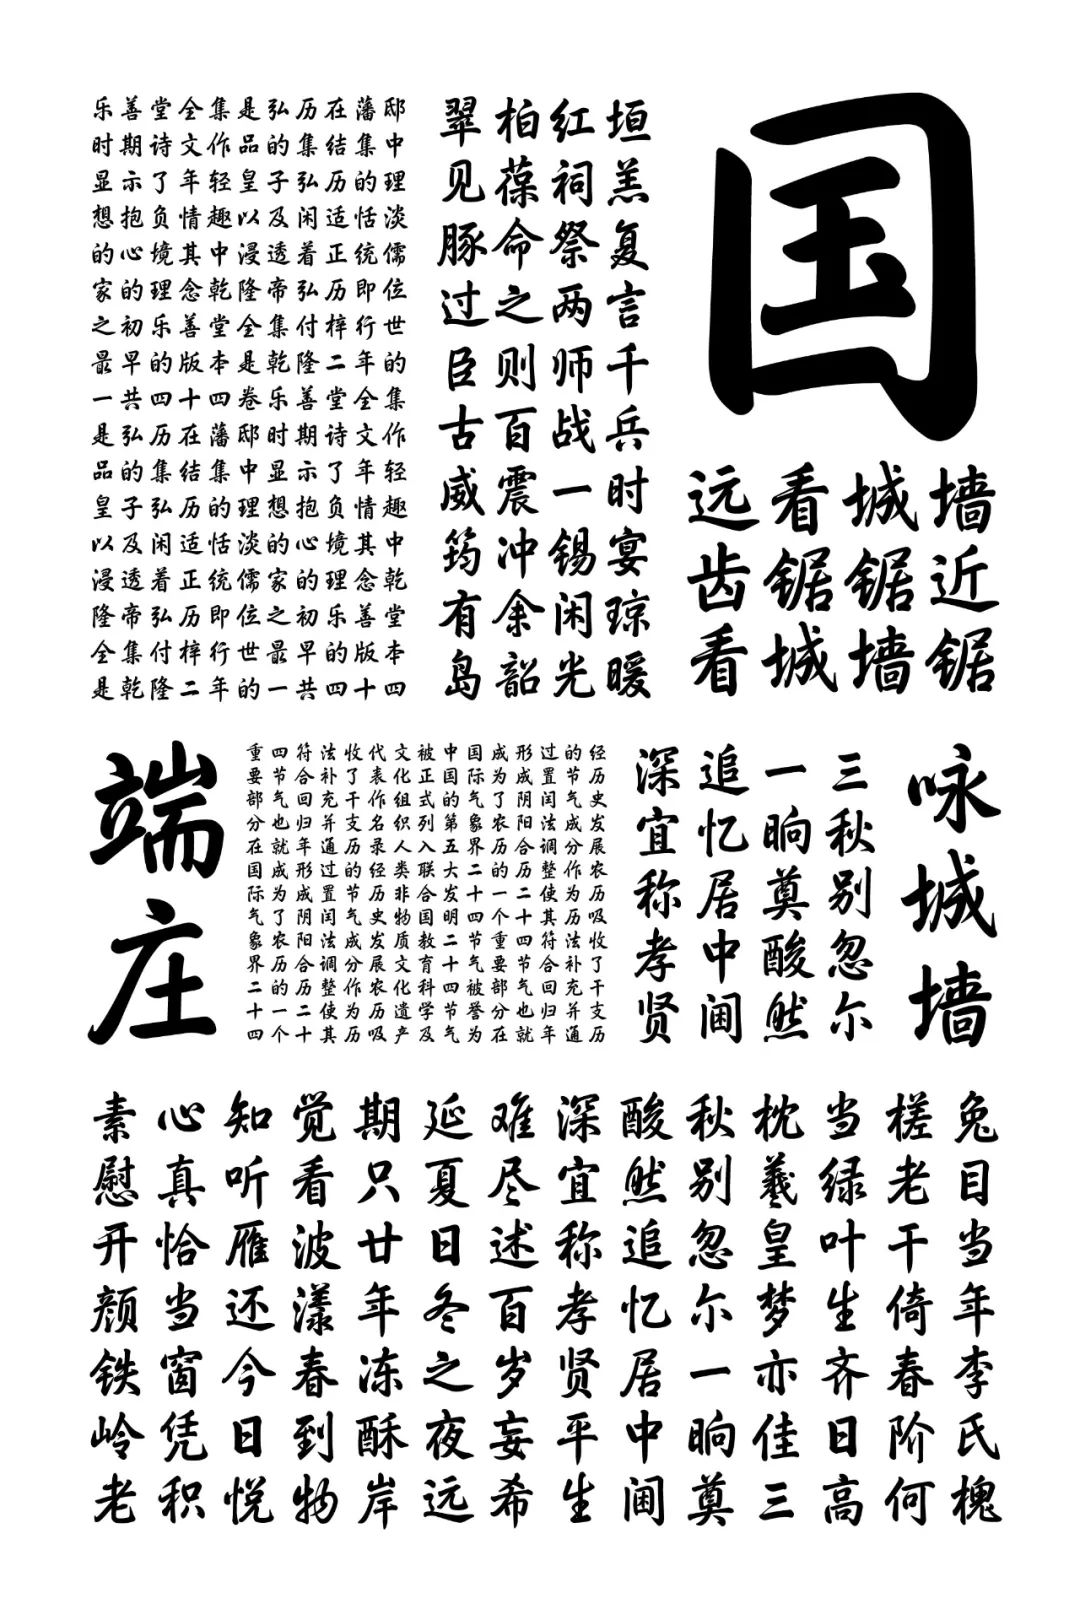 乐善堂全集是弘历在藩邸
时期诗文作品的集结集中
显示了年轻皇子弘历的理
想抱负情趣以及闲适恬淡
的心境其中浸透着正统儒
家的理念乾隆帝弘历即位
之初乐善堂全集付梓行世
最早的版本是乾隆二年的
一共四十四卷乐善堂全集
是弘历在藩邸时期诗文作
品的集结集中显示了年轻
皇子弘历的理想抱负情趣
以及闲适恬淡的心境其中
浸透着正统儒家的理念乾
隆帝弘历即位之初乐善堂
全集付梓行世最早的版本
是乾隆二年的一共四十四
翠柏红垣
见葆祠羔
豚命祭复
过之两言
臣则师千
古百战兵
威震一时
筠冲锡宴
有余闲琼
岛韶光暖
国
远看城墙
齿锯锯近
看城墙锯
咏城墙
三秋别忽尔
一晌奠酸然
追忆居中阃
深宜称孝贤
经历史发展农历吸收了干支历
的节气成分作为历法补充并通
过置闰法调整使其符合回归年
形成阴阳合历二十四节气也就
成为了农历的一个重要部分在
国际气象界二十四节气被誉为
中国的第五大发明二十四节气
被正式列入联合国教育科学及
文化组织人类非物质文化遗产
代表作名录经历史发展农历吸
收了干支历的节气成分作为历
法补充并通过置闰法调整使其
符合回归年形成阴阳合历二十
四节气也就成为了农历的一个
重要部分在国际气象界二十四
端庄
兔目当年李氏槐
槎老干倚春阶何
当绿叶生齐日高
枕羲皇梦亦佳三
秋别忽尔一晌奠
酸然追忆居中阃
深宜称孝贤平生
难尽述百岁妄希
延夏日冬之夜远
期只廿年冻酥岸
觉看波漾春到物
知听雁还今日悦
心真恰当窗凭积
素慰开颜铁岭老